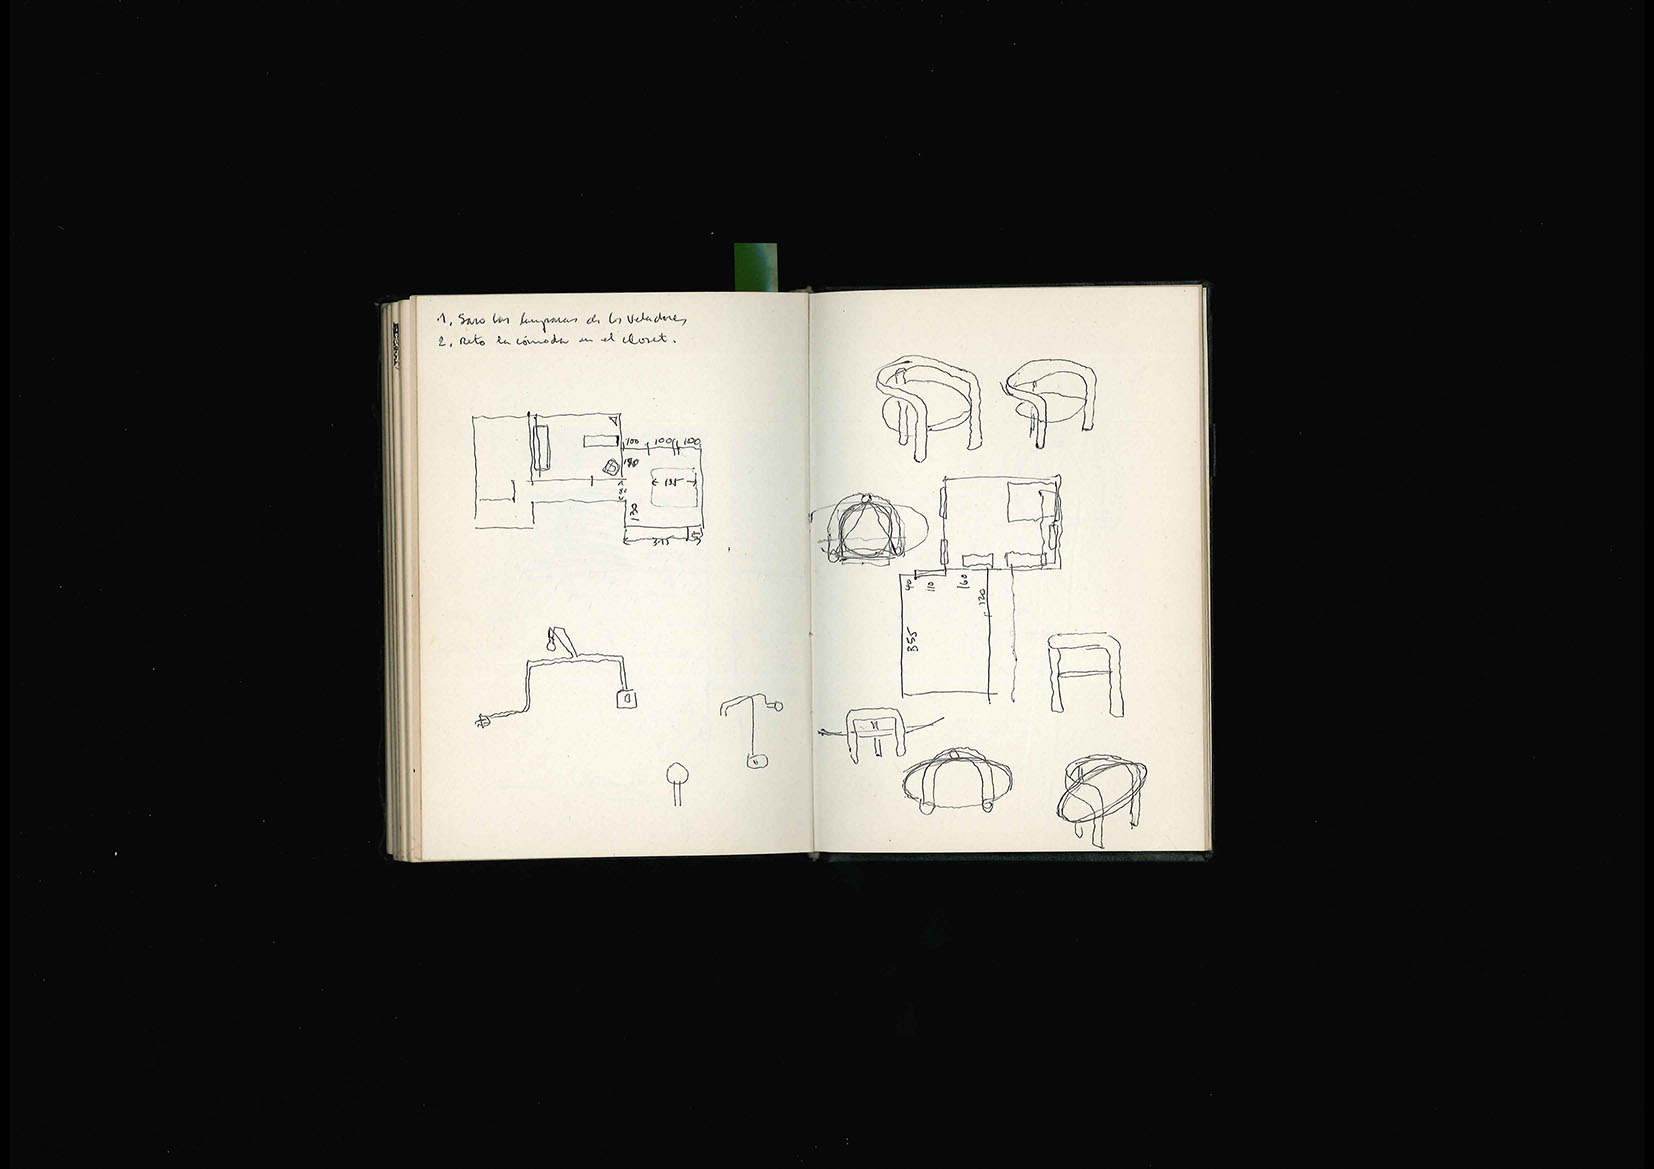 1. Saco las lamparas de los veladores
2. Meto la cómoda en el closet.
100 100 100
190
135
80
130
40 110 160
120
355